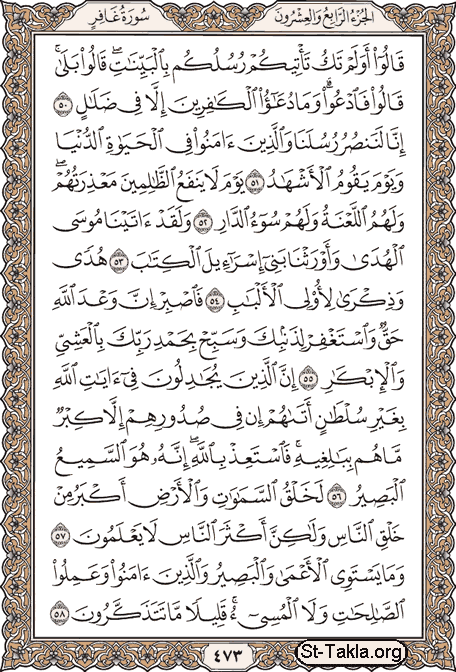 الجزء الرابع والعشرون سورة غافر
قَالُوٓاْ أَوَلَمْ تَكُ تَأْتِيكُمْ رُسُلُكُم بِٱلْبَيِّنَٰتِۖ قَالُواْ بَلَىٰۚ
قَالُواْ فَٱدْعُواْۗ وَمَا دُعَٰٓؤُاْ ٱلْكَٰفِرِينَ إِلَّا فِي ضَلَٰلٍ ٥٠
إِنَّا لَنَنصُرُ رُسُلَنَا وَٱلَّذِينَ ءَامَنُواْ فِي ٱلْحَيَوٰةِ ٱلدُّنْيَا
وَيَوْمَ يَقُومُ ٱلْأَشْهَٰدُ ٥١ يَوْمَ لَا يَنفَعُ ٱلظَّٰلِمِينَ مَعْذِرَتُهُمْۖ
وَلَهُمُ ٱللَّعْنَةُ وَلَهُمْ سُوٓءُ ٱلدَّارِ ٥٢ وَلَقَدْ ءَاتَيْنَا مُوسَى
ٱلْهُدَىٰ وَأَوْرَثْنَا بَنِيٓ إِسْرَٰٓءِيلَ ٱلْكِتَٰبَ ٥٣ هُدًى
وَذِكْرَىٰ لِأُوْلِي ٱلْأَلْبَٰبِ ٥٤ فَٱصْبِرْ إِنَّ وَعْدَ ٱللَّهِ
حَقٌّ وَٱسْتَغْفِرْ لِذَنۢبِكَ وَسَبِّحْ بِحَمْدِ رَبِّكَ بِٱلْعَشِيِّ
وَٱلْإِبْكَٰرِ ٥٥ إِنَّ ٱلَّذِينَ يُجَٰدِلُونَ فِيٓ ءَايَٰتِ ٱللَّهِ
بِغَيْرِ سُلْطَٰنٍ أَتَىٰهُمْ إِن فِي صُدُورِهِمْ إِلَّا كِبْرٌ
مَّا هُم بِبَٰلِغِيهِۚ فَٱسْتَعِذْ بِٱللَّهِۖ إِنَّهُۥ هُوَ ٱلسَّمِيعُ
ٱلْبَصِيرُ ٥٦ لَخَلْقُ ٱلسَّمَٰوَٰتِ وَٱلْأَرْضِ أَكْبَرُ مِنْ
خَلْقِ ٱلنَّاسِ وَلَٰكِنَّ أَكْثَرَ ٱلنَّاسِ لَا يَعْلَمُونَ ٥٧
وَمَا يَسْتَوِي ٱلْأَعْمَىٰ وَٱلْبَصِيرُ وَٱلَّذِينَ ءَامَنُواْ وَعَمِلُواْ
ٱلصَّٰلِحَٰتِ وَلَا ٱلْمُسِيٓءُۚ قَلِيلًا مَّا تَتَذَكَّرُونَ ٥٨
٤٧٣
St-Takla.org